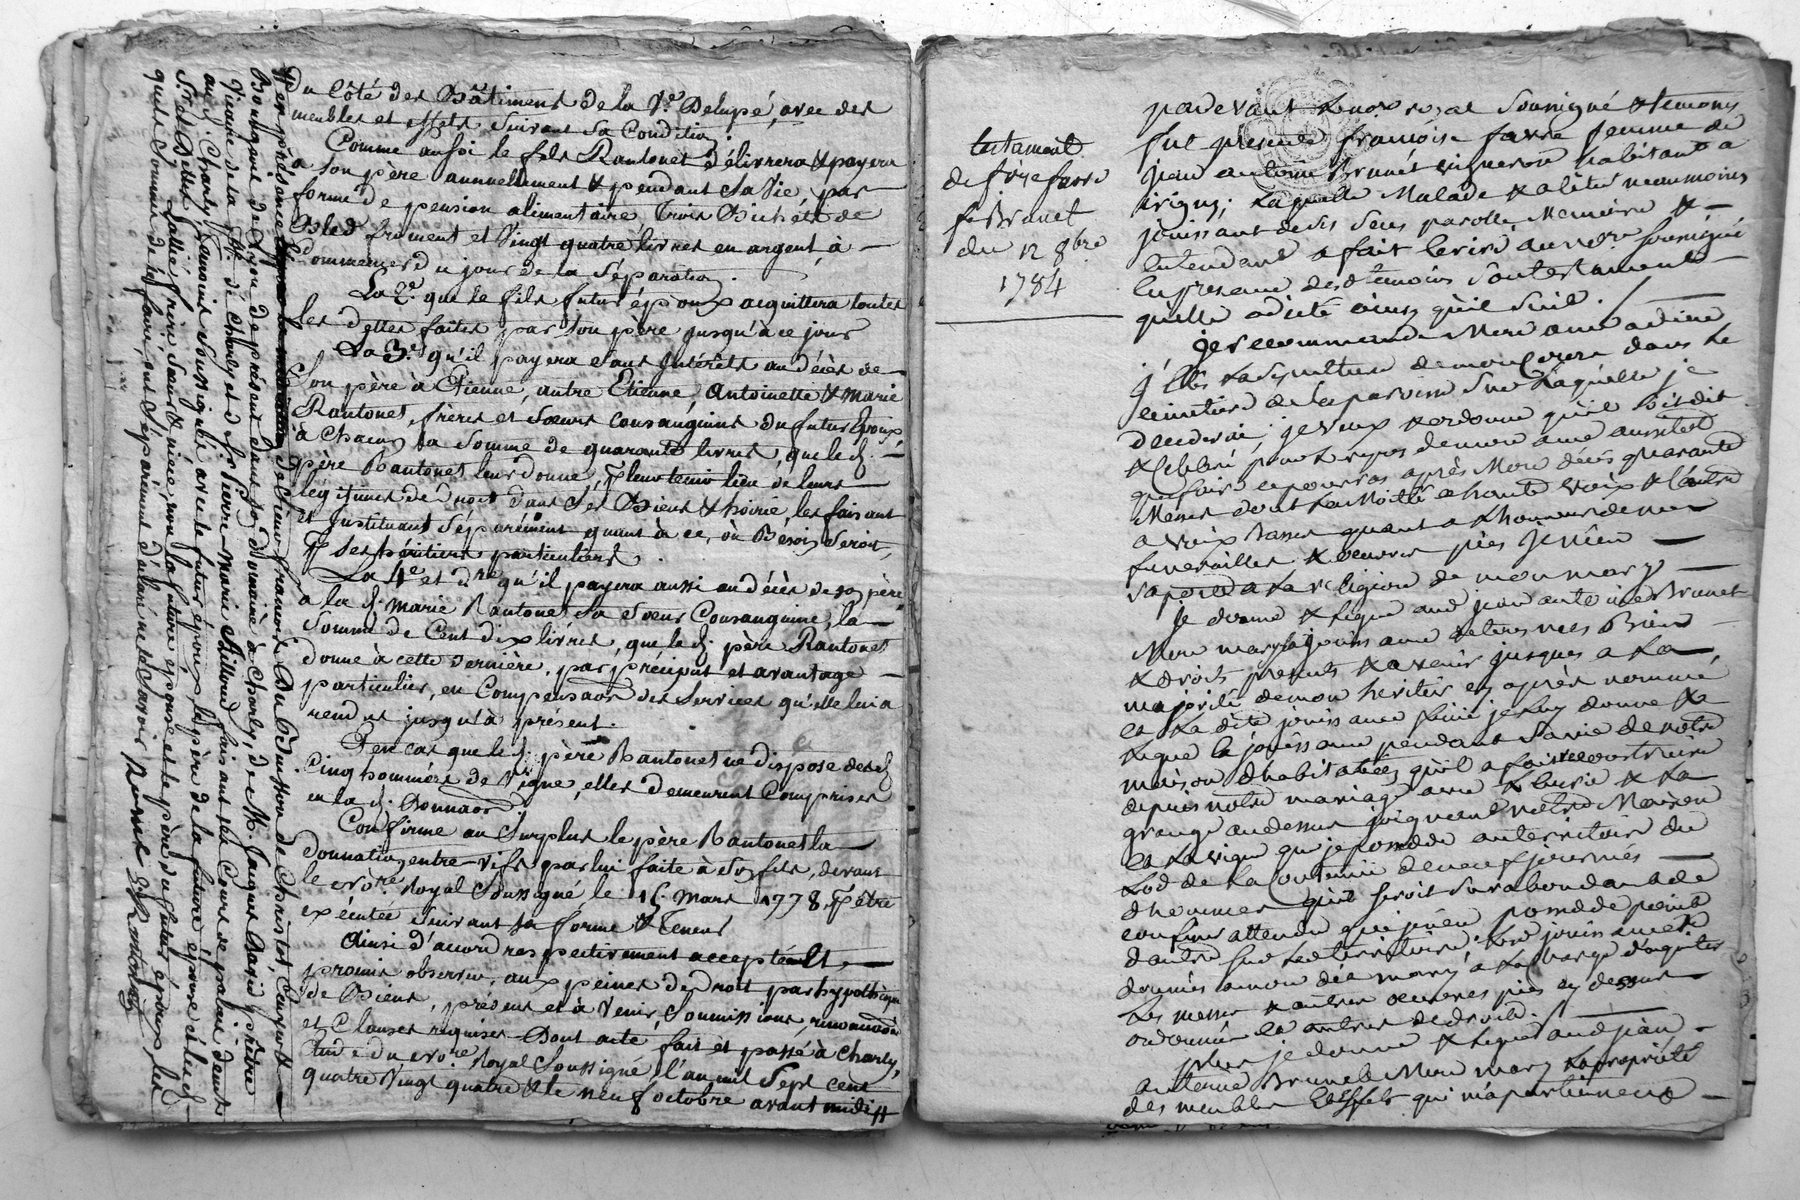 Du Côté des Bâtiments de la V.e Delupé, avec des
meubles et effets suivant sa Condition.
Comme aussi le fils Rantonet délivrera & payera
à son père annuellement & pendant sa vie, par
forme de pension alimentaire, trois Bichets de
Bled froment et vingt quatre livres en argent, à
Commencer du jour de la Séparation.
La 2.e que le fils futur époux acquittera toutes
les dettes faites par son père jusqu'à ce jour
La 3.e qu'il payera sans Intérêts au décès de
Son père à Etienne, autre Etienne, Antoinette & Marie
Rantonet, frères et Sœurs consanguins du futur Epoux,
à chacun la somme de quarante livres, que led.
père Rantonet leur donne, p.r leur tenir lieu de leurs
légitimes de droit dans ses Biens & hoirie, les faisant
et Instituant Séparément quant à ce, où Besoin Seroit,
ses héritiers particuliers.
La 4.e et d.re qu'il payera aussi au décès de son père
à la d. Marie Rantonet sa Sœur Consanguine, la
Somme de Cent dix livres, que le d. père Rantonet
donne à cette dernière, par préciput et avantage
particulier, en Compensaõn des Services qu'elle lui a
rendus jusqu'à présent.
Et en cas que le d. père Rantonet ne dispose des d.
Cinq hommées de Vigne, elles demeurent Comprises
en la d. Donnaõn.
Confirme au Surplus le père Rantonet la
donnation entre-vifs par lui faite à son fils, devant
le no.re Royal Soussigné, le 15. Mars 1778, p.r être
exécutée Suivant sa forme & Teneur
Ainsi d'accord respectivement accepté et
promis observer, aux peines de droit par hypothèque
de Biens, présens et à Venir, Soumissions, renonciaõn
et Clauses requises Dont acte, fait et passé à Charly,
Etude du no.re Royal Soussigné, l'an mil Sept cent
quatre Vingt quatre & le neuf octobre avant midi //
// en présence de Sieur François Du Buisson de Christot, Ecuyer
Bourgeois de Lyon de présent dans son domaine à Charly, de M. Jaques Basin prêtre
Vicaire de la de Charly et de S.r Pierre-Marie faisant ses Cours de palais demt
aud. Charly, Témoins Soussignés avec le futur époux, le père de la future épouse et led.
S.r et Delles Lallié frère, Sœur & nièce, non la future épouse et le père du futur époux, lesq
quels Sommés de le faire, ont séparément déclaré ne le savoir
Rantonet
testament
de f.çoise favre
f.e Brunet
du 12 8bre
1784
pardevant Le no.re royal Sousigné & temoins
fut presente françoise favre femme de
jean antoine Brunet vigneron habitant a
irigny, Laquelle Malade & alitée neanmoins
jouissant de ses Sens parolle, Memoire &
Entendemt a fait Ecrire au no.re Sousigné
En presence desd temoins Son testament
quelle adicté ainsy quil Suit.
je recommande Mon ame a dieu
j'Elis La Sepulture de mon Corps dans Le
cimetiere de la paroisse Sur Laquelle je
Decederai, je veux & ordonne quil Soit dit
& Celebré pour Le repos de mon ame aussitot
que faire ce pourra après Mon décés quarante
Messes dont La Moitié a haute voix & l'autre
a voix Basse quant a L'honneur de mes
funerailles & oeuvres pies je m'en
raporte a La religion de mon mary
Je donne & Legue aud jean antoine Brunet
Mon mary La jouissance de tous mes Biens
& droits presents & avenir jusques a La
majorité de mon heritier cy après nommé
et La dite jouissance finie je Luy donne &
Legue La jouissance pendant Sa vie de notre
maison d'habitation quil a fait reconstruire
depuis notre mariage avec L'Ecurie & La
grange au dessus joignant notre Maison
et La vigne que je possede au territoire du
Lod de La Contenue de neuf journées
d'hommes quil Seroit Surabondant de
confiner attendu que je n'en possede point
d'autre sur Led territoire, Lesd jouissances
données a mon dit mary a La charge d'aquiter
Les messes & autres oeuvres pies cy dessus
ordonnées et autres de droit.
plus je donne & Legue aud jean
antoine Brunet Mon mary La propriété
des meubles & Effets qui m'apartiennent